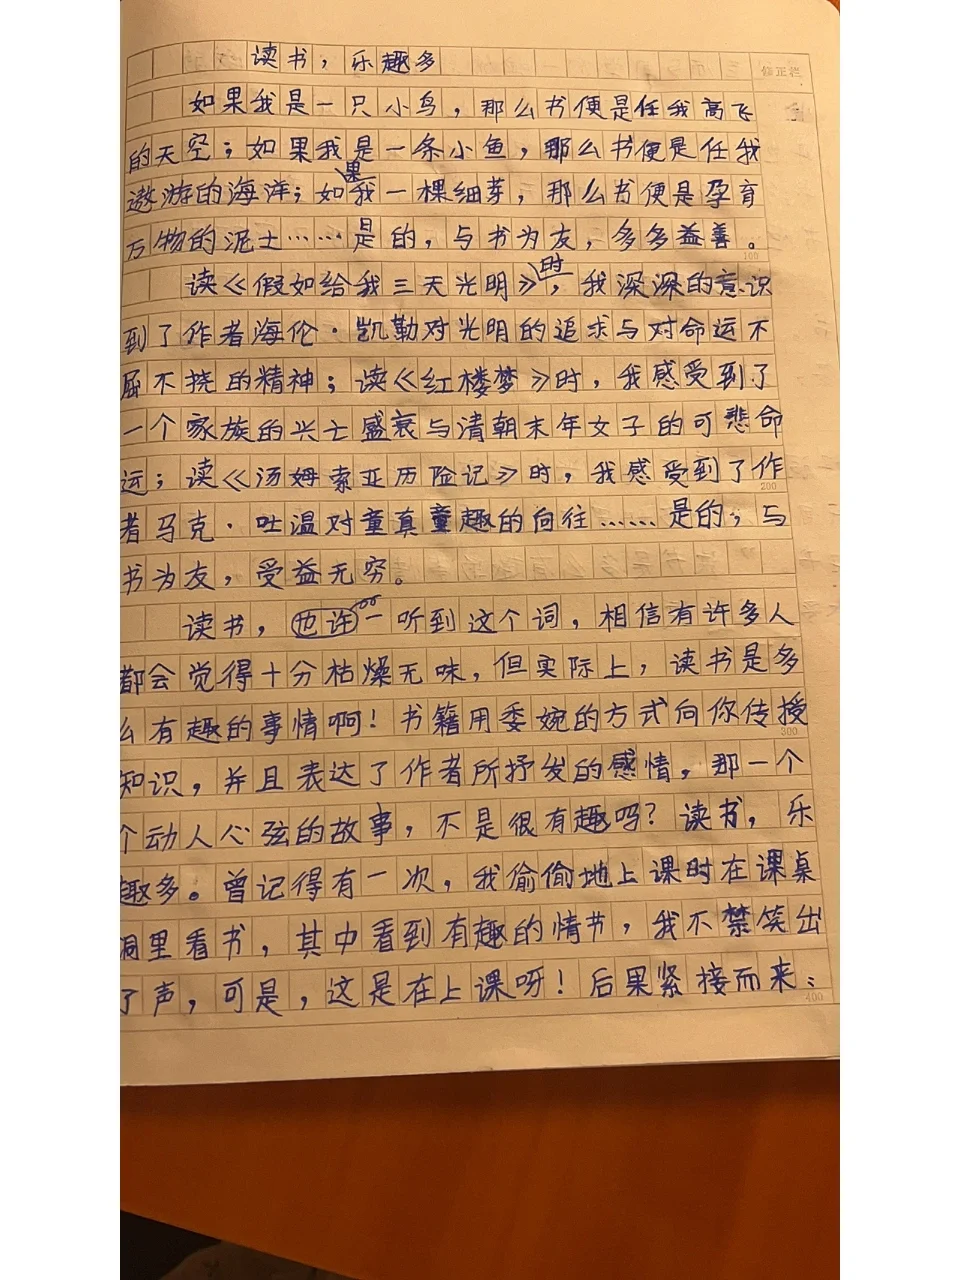 读书，乐趣多
修正栏
如果我是一只小鸟，那么书便是任我高飞
的天空；如果我是一条小鱼，那么书便是任我
遨游的海洋；如果我一棵细芽，那么书便是孕育
万物的泥土……是的，与书为友，多多益善。
100
读《假如给我三天光明》时，我深深的意识
到了作者海伦·凯勒对光明的追求与对命运不
屈不挠的精神；读《红楼梦》时，我感受到了
一个家族的兴亡盛衰与清朝末年女子的可悲命
运；读《汤姆索亚历险记》时，我感受到了作
200
者马克·吐温对童真童趣的向往……是的，与
书为友，受益无穷。
读书，也许一听到这个词，相信有许多人
都会觉得十分枯燥无味，但实际上，读书是多
么有趣的事情啊！书籍用委婉的方式向你传授
300
知识，并且表达了作者所抒发的感情，那一个
个动人心弦的故事，不是很有趣吗？读书，乐
趣多。曾记得有一次，我偷偷地上课时在课桌
洞里看书，其中看到有趣的情节，我不禁笑出
了声，可是，这是在上课呀！后果紧接而来：
400